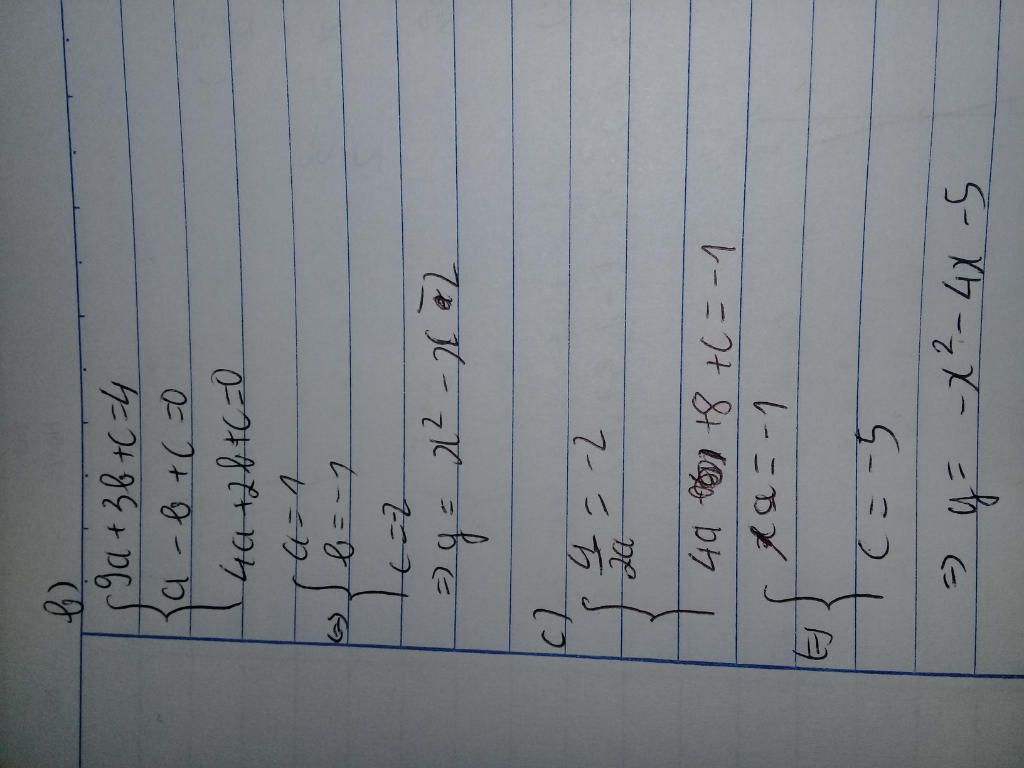 b)
9a + 3b + c = 4
a - b + c = 0
4a + 2b + c = 0
a = 1
(=) b = -1
c = -2
=> y = x² - x - 2
c)
4/2a = -2
4a + 8 + c = -1
(=) a = -1
c = -5
=> y = -x² - 4x - 5